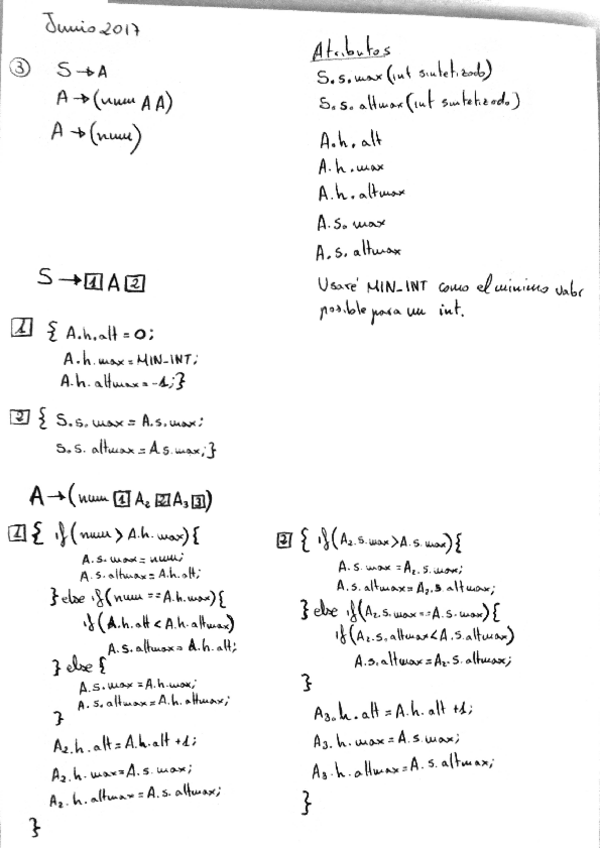 Junio 2017
③ S → A
A → (num A A)
A → (num)
Atributos
S.s.max (int sintetizado)
S.s.altmax (int sintetizado)
A.h.alt
A.h.max
A.h.altmax
A.s.max
A.s.altmax
Usaré MIN_INT como el minimo valor
posible para un int.
S → [1] A [2]
[1] { A.h.alt = 0;
A.h.max = MIN_INT;
A.h.altmax = -1;}
[2] { S.s.max = A.s.max;
S.s.altmax = A.s.max;}
A → (num [1] A₂ [2] A₃ [3])
[1] { if (num > A.h.max){
A.s.max = num;
A.s.altmax = A.h.alt;
} else if (num == A.h.max){
if (A.h.alt < A.h.altmax)
A.s.altmax = A.h.alt;
} else {
A.s.max = A.h.max;
A.s.altmax = A.h.altmax;
}
A₂.h.alt = A.h.alt +1;
A₂.h.max = A.s.max;
A₂.h.altmax = A.s.altmax;
}
[2] { if (A₂.s.max > A.s.max){
A.s.max = A₂.s.max;
A.s.altmax = A₂.s.altmax;
} else if (A₂.s.max == A.s.max){
if (A₂.s.altmax < A.s.altmax)
A.s.altmax = A₂.s.altmax;
}
A₃.h.alt = A.h.alt +1;
A₃.h.max = A.s.max;
A₃.h.altmax = A.s.altmax;
}